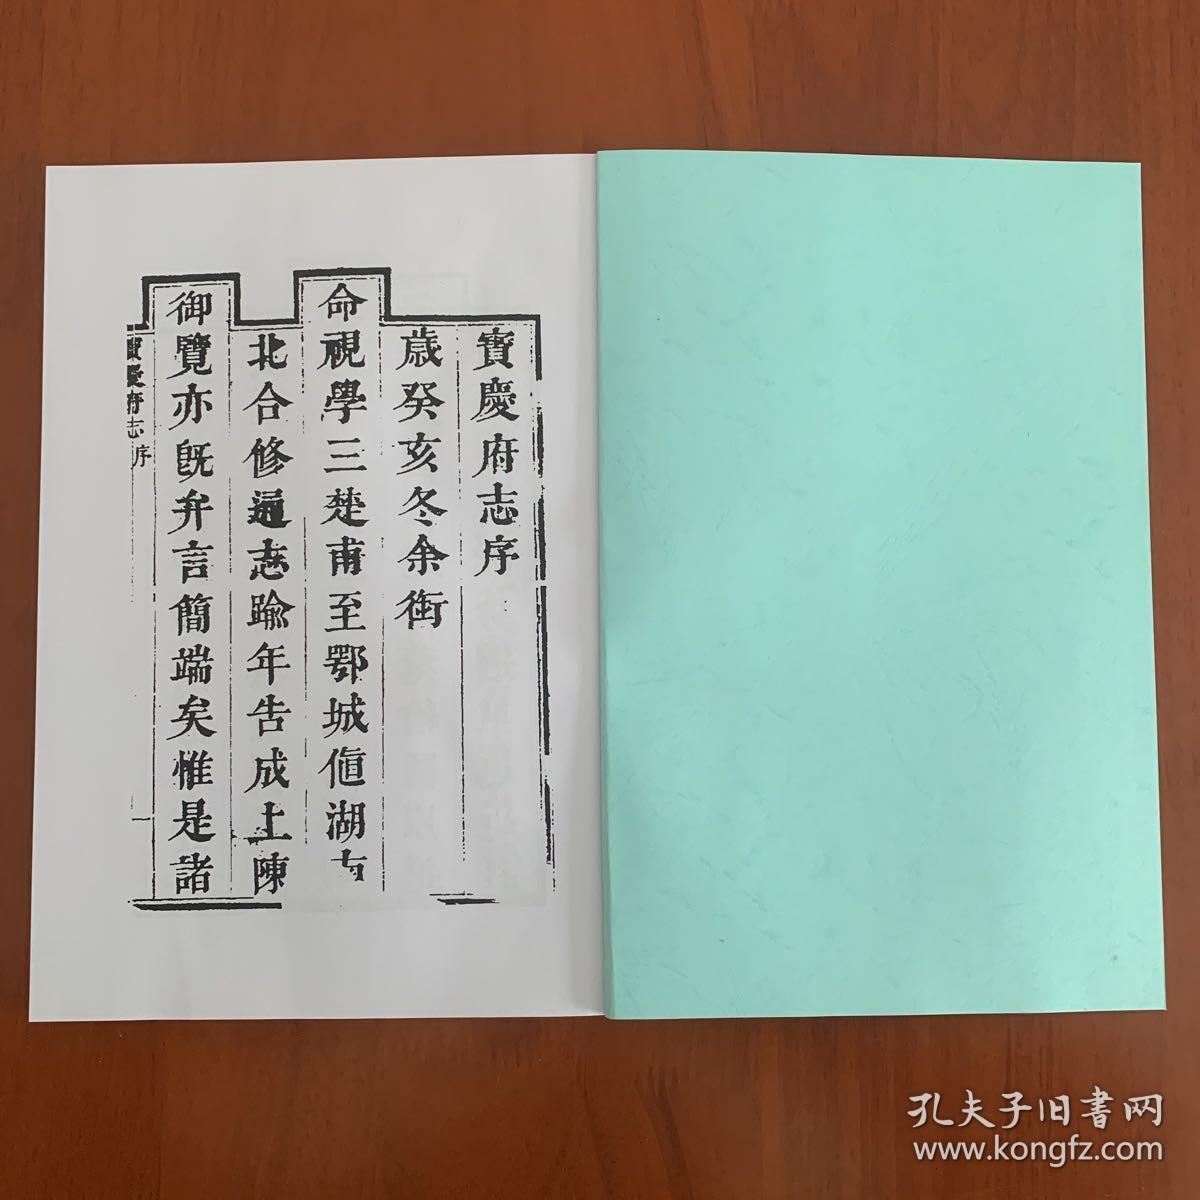 寶慶府志序
歲癸亥冬余銜
命視學三楚甫至鄂城值湖
北合修通志踰年告成上陳
御覽亦既弁言簡端矣惟是諸
寶慶府志 序
孔夫子旧书网
www.kongfz.com